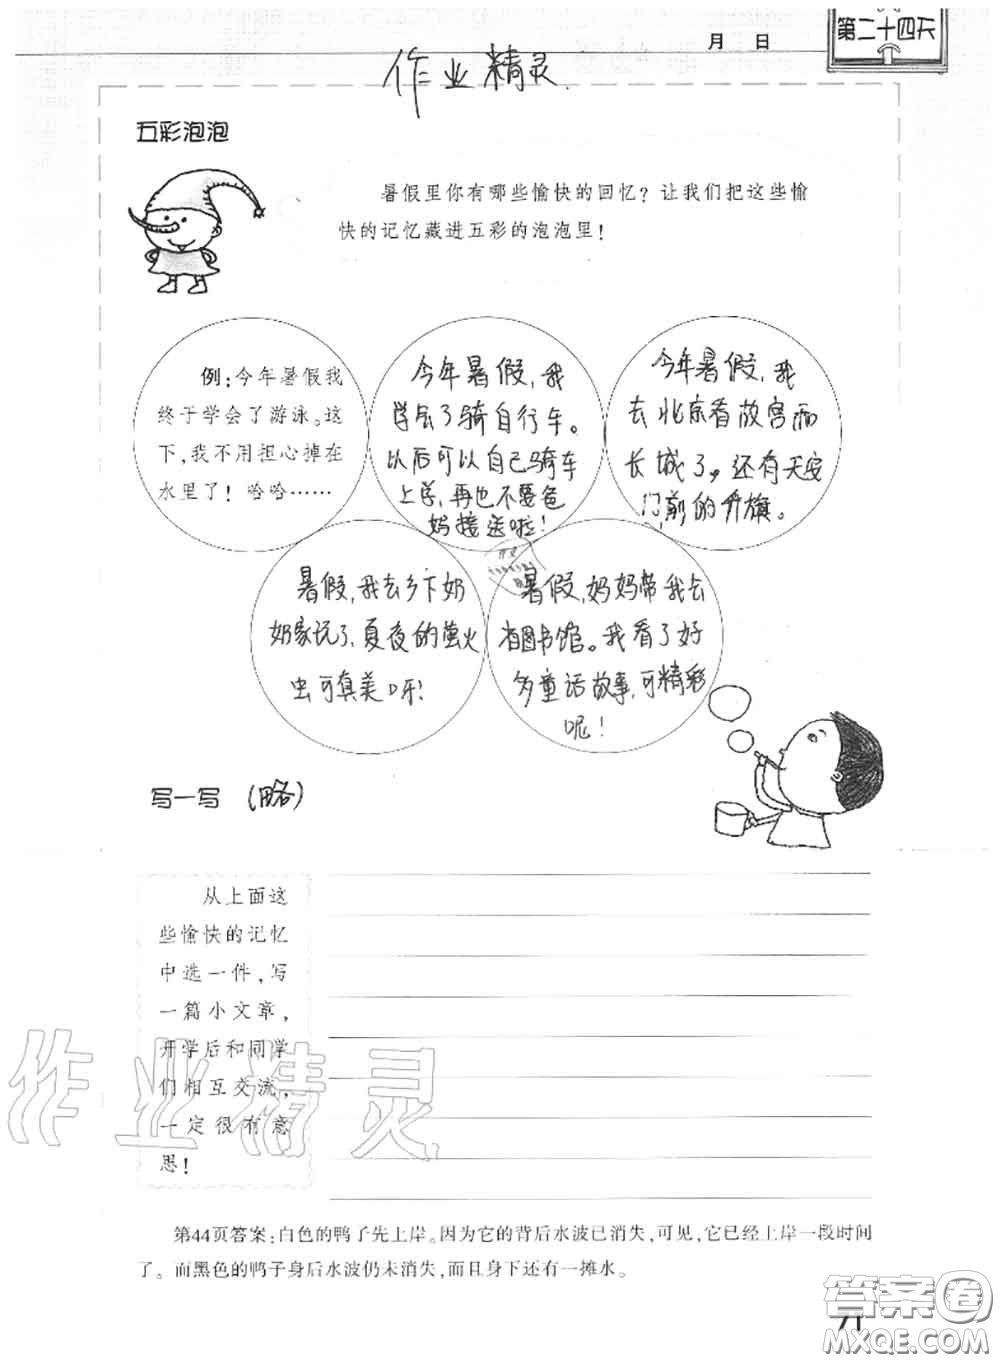 第二十四天
月 日
作业精灵
五彩泡泡
暑假里你有哪些愉快的回忆？让我们把这些愉
快的记忆藏进五彩的泡泡里！
例：今年暑假我
终于学会了游泳。这
下，我不用担心掉在
水里了！哈哈……
今年暑假，我
学会了骑自行车。
以后可以自己骑车
上学，再也不要爸
妈接送啦！
今年暑假，我
去北京看故宫而
长城了，还有天安
门前的升旗。
暑假，我去乡下奶
奶家玩了，夏夜的萤火
虫可真美呀！
暑假，妈妈带我去
省图书馆。我看了好
多童话故事，可精彩
呢！
写一写 （略）
从上面这
些愉快的记忆
中选一件，写
一篇小文章，
开学后和同学
们相互交流，
一定很有意
思！
作业精灵
第44页答案：白色的鸭子先上岸。因为它的背后水波已消失，可见，它已经上岸一段时间
了。而黑色的鸭子身后水波仍未消失，而且身下还有一摊水。
71
答案圈
MXQE.COM